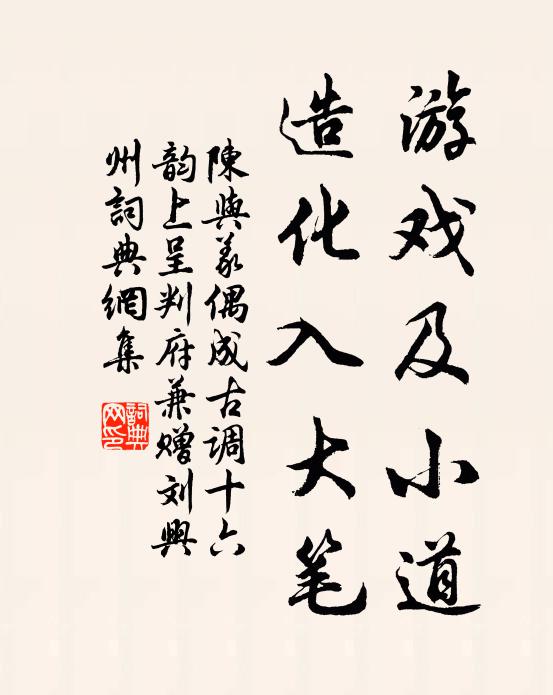 游戏及小道
造化入大笔
陳與義偶成古调十六
韵上呈判府兼赠刘興
州詞典網集
詞典
网印